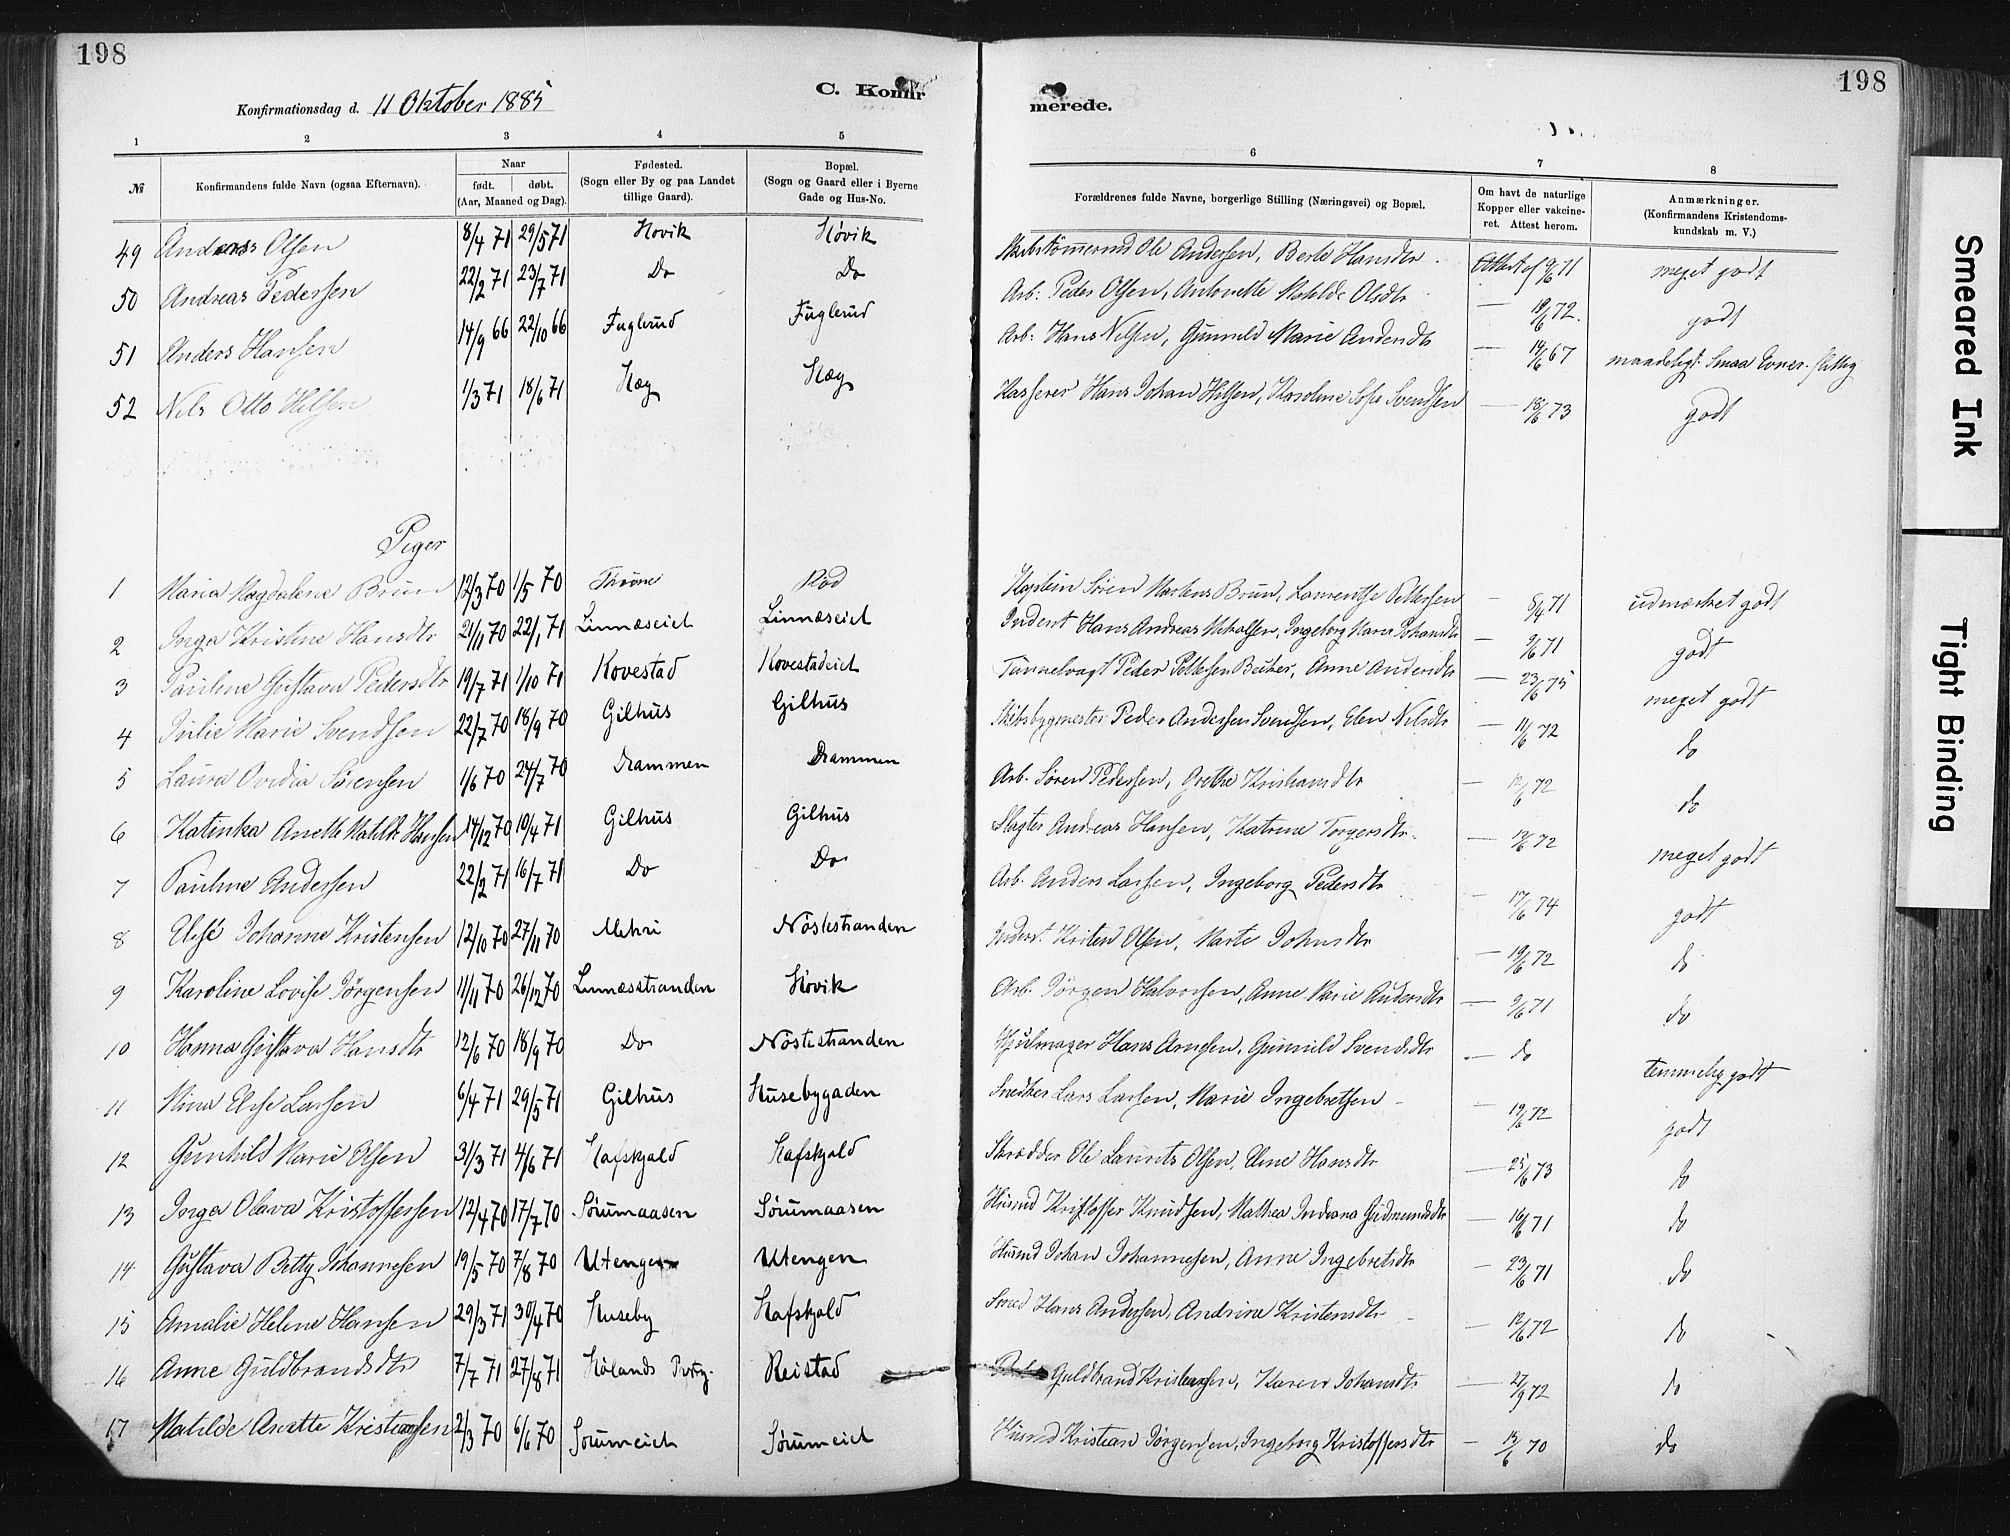 198
198
Konfirmationsdag d. 11 Oktober 1885
C. Konfir
merede.
1 2 3 4 5 6 7 8
№ Konfirmandens fulde Navn (ogsaa Efternavn). Naar født. døbt. (Aar, Maaned og Dag). Fødested. (Sogn eller By og paa Landet tillige Gaard). Bopæl. (Sogn og Gaard eller i Byerne Gade og Hus-No. Forældrenes fulde Navne, borgerlige Stilling (Næringsvei) og Bopæl. Om havt de naturlige Kopper eller vakcineret. Attest herom. Anmærkninger. (Konfirmandens Kristendomskundskab m. V.)
49 Anders Olsen 8/4 71 29/5 71 Hovik Høvik Skibstømmermd Ole Andersen, Berte Hansdtr Attest af 9/6 71 meget godt
50 Andreas Pedersen 22/2 71 23/7 71 Do Do Arb: Peder Olsen, Antonette Matilde Olsdtr — 19/6 72. godt
51 Anders Hansen 14/9 66 22/10 66 Fuglerud Fuglerud Arb: Hans Nilsen, Gunnild Marie Andersdtr — 14/6 67 maadeligt. Smaa Evner. flittig
52 Nils Otto Hilsen 1/3 71 18/6 71 Hæg Hæg Kasserer Hans Johan Hilsen, Karoline Sofie Svendsen — 18/6 73 godt
Piger
1 Maria Magdalene Brun 12/3 70 1/5 70 Rød Kaptein Sören Martens Brun, Laurentse Pettersen — 8/4 71 udmærket godt
2 Inga Kristine Hansdtr 21/11 70 22/1 71 Linnæseiet Linnæseiet Inderst Hans Andreas Ingeborg Marie Johansdtr — 9/6 71 godt
3 Pauline Gustava Pedersdtr 19/7 71 1/10 71 Kovestad Kovestadeiet Tunnelvagt Peder Pettersen Anne Andersdtr — 23/6 75 meget godt
4 Julie Marie Svendsen 22/7 70 18/9 70 Gilhus Gilhus Skibsbygmester Peder Andersen Svendsen, Elen Nilsdtr — 11/6 72 do
5 Laura Ovidia Sörensen 1/6 70 24/7 70 Drammen Drammen Arb. Sören Pedersen, Grethe Kristiansdtr — 12/6 72 do
6 Katinka Anette Matilde Hansen 14/12 70 19/4 71 Gilhus Gilhus Slagter Andreas Hansen, Katrine Torgersdtr. — 12/6 72 meget godt
7 Pauline Andersen 22/2 71 16/7 71 Do Do Arb. Anders Larsen, Ingeborg Pedersdtr — 17/6 74 godt
8 Else Johanne Kristensen 12/10 70 27/11 70 Nöstestranden Inderst. Kristen Olsen, Marte Johnsdtr — 19/6 72 do
9 Karoline Lovise Jörgensen 11/11 70 26/12 70 Linnæsstranden Høvik Arb. Jörgen Halvorsen, Anne Marie Andersdtr — 9/6 71 do
10 Hanna Gustava Hansdtr 12/6 70 18/9 70 Do Nöstestranden Hjulmager Hans Arnesen, Gunnild Svendsdtr — do temmelig godt
11 Nina Else Larsen 6/4 71 29/5 71 Gilhus Husebygaden Snedker Lars Larsen, Marie Ingebretsen — 19/6 72 godt
12 Gunhild Marie Olsen 31/3 71 4/6 71 Hafskjold Hafskjold Skrædder Ole Laurits Olsen, Hansdtr — 25/6 73 do
13 Inga Olava Kristoffersen 12/4 70 17/7 70 Sørumaasen Sørumaasen Husmd Kristoffer Knudsen, Mathea Indiana Gudmundsdtr — 16/6 71 do
14 Gustava Betty Johannesen 19/5 70 7/8 70 Utengen Utengen Husmd Johan Johannesen, Anne Ingebretsdtr — 23/6 71 do
15 Amalie Helene Hansen 29/3 71 30/4 70 Huseby Hafskjold Smed Hans Andersen, Andrine Kristensdtr — 12/6 72 do
16 Anne Guldbrandsdtr 7/7 71 27/8 71 Hølands Prstg. Reistad Guldbrand Kristiansen, Karen Johansdtr — 27/9 72 do
17 Matilde Anette Kristiansen 2/3 70 6/6 70 Sørumeiet Sørumeiet Husmd Kristian Jörgensen, Ingeborg Kristoffersdtr — 12/6 70 do
Smeared Ink
Tight Binding